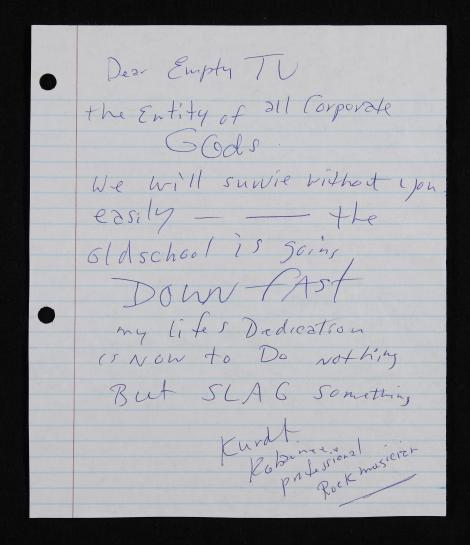 Dear Empty TV
the Entity of all Corporate
GOds
we will survie without you
easily — — the
oldschool is going
DOWN fASt
my lifes Dedication
is Now to Do nothing
But SLAG something
Kurdt
professional
Rock musician